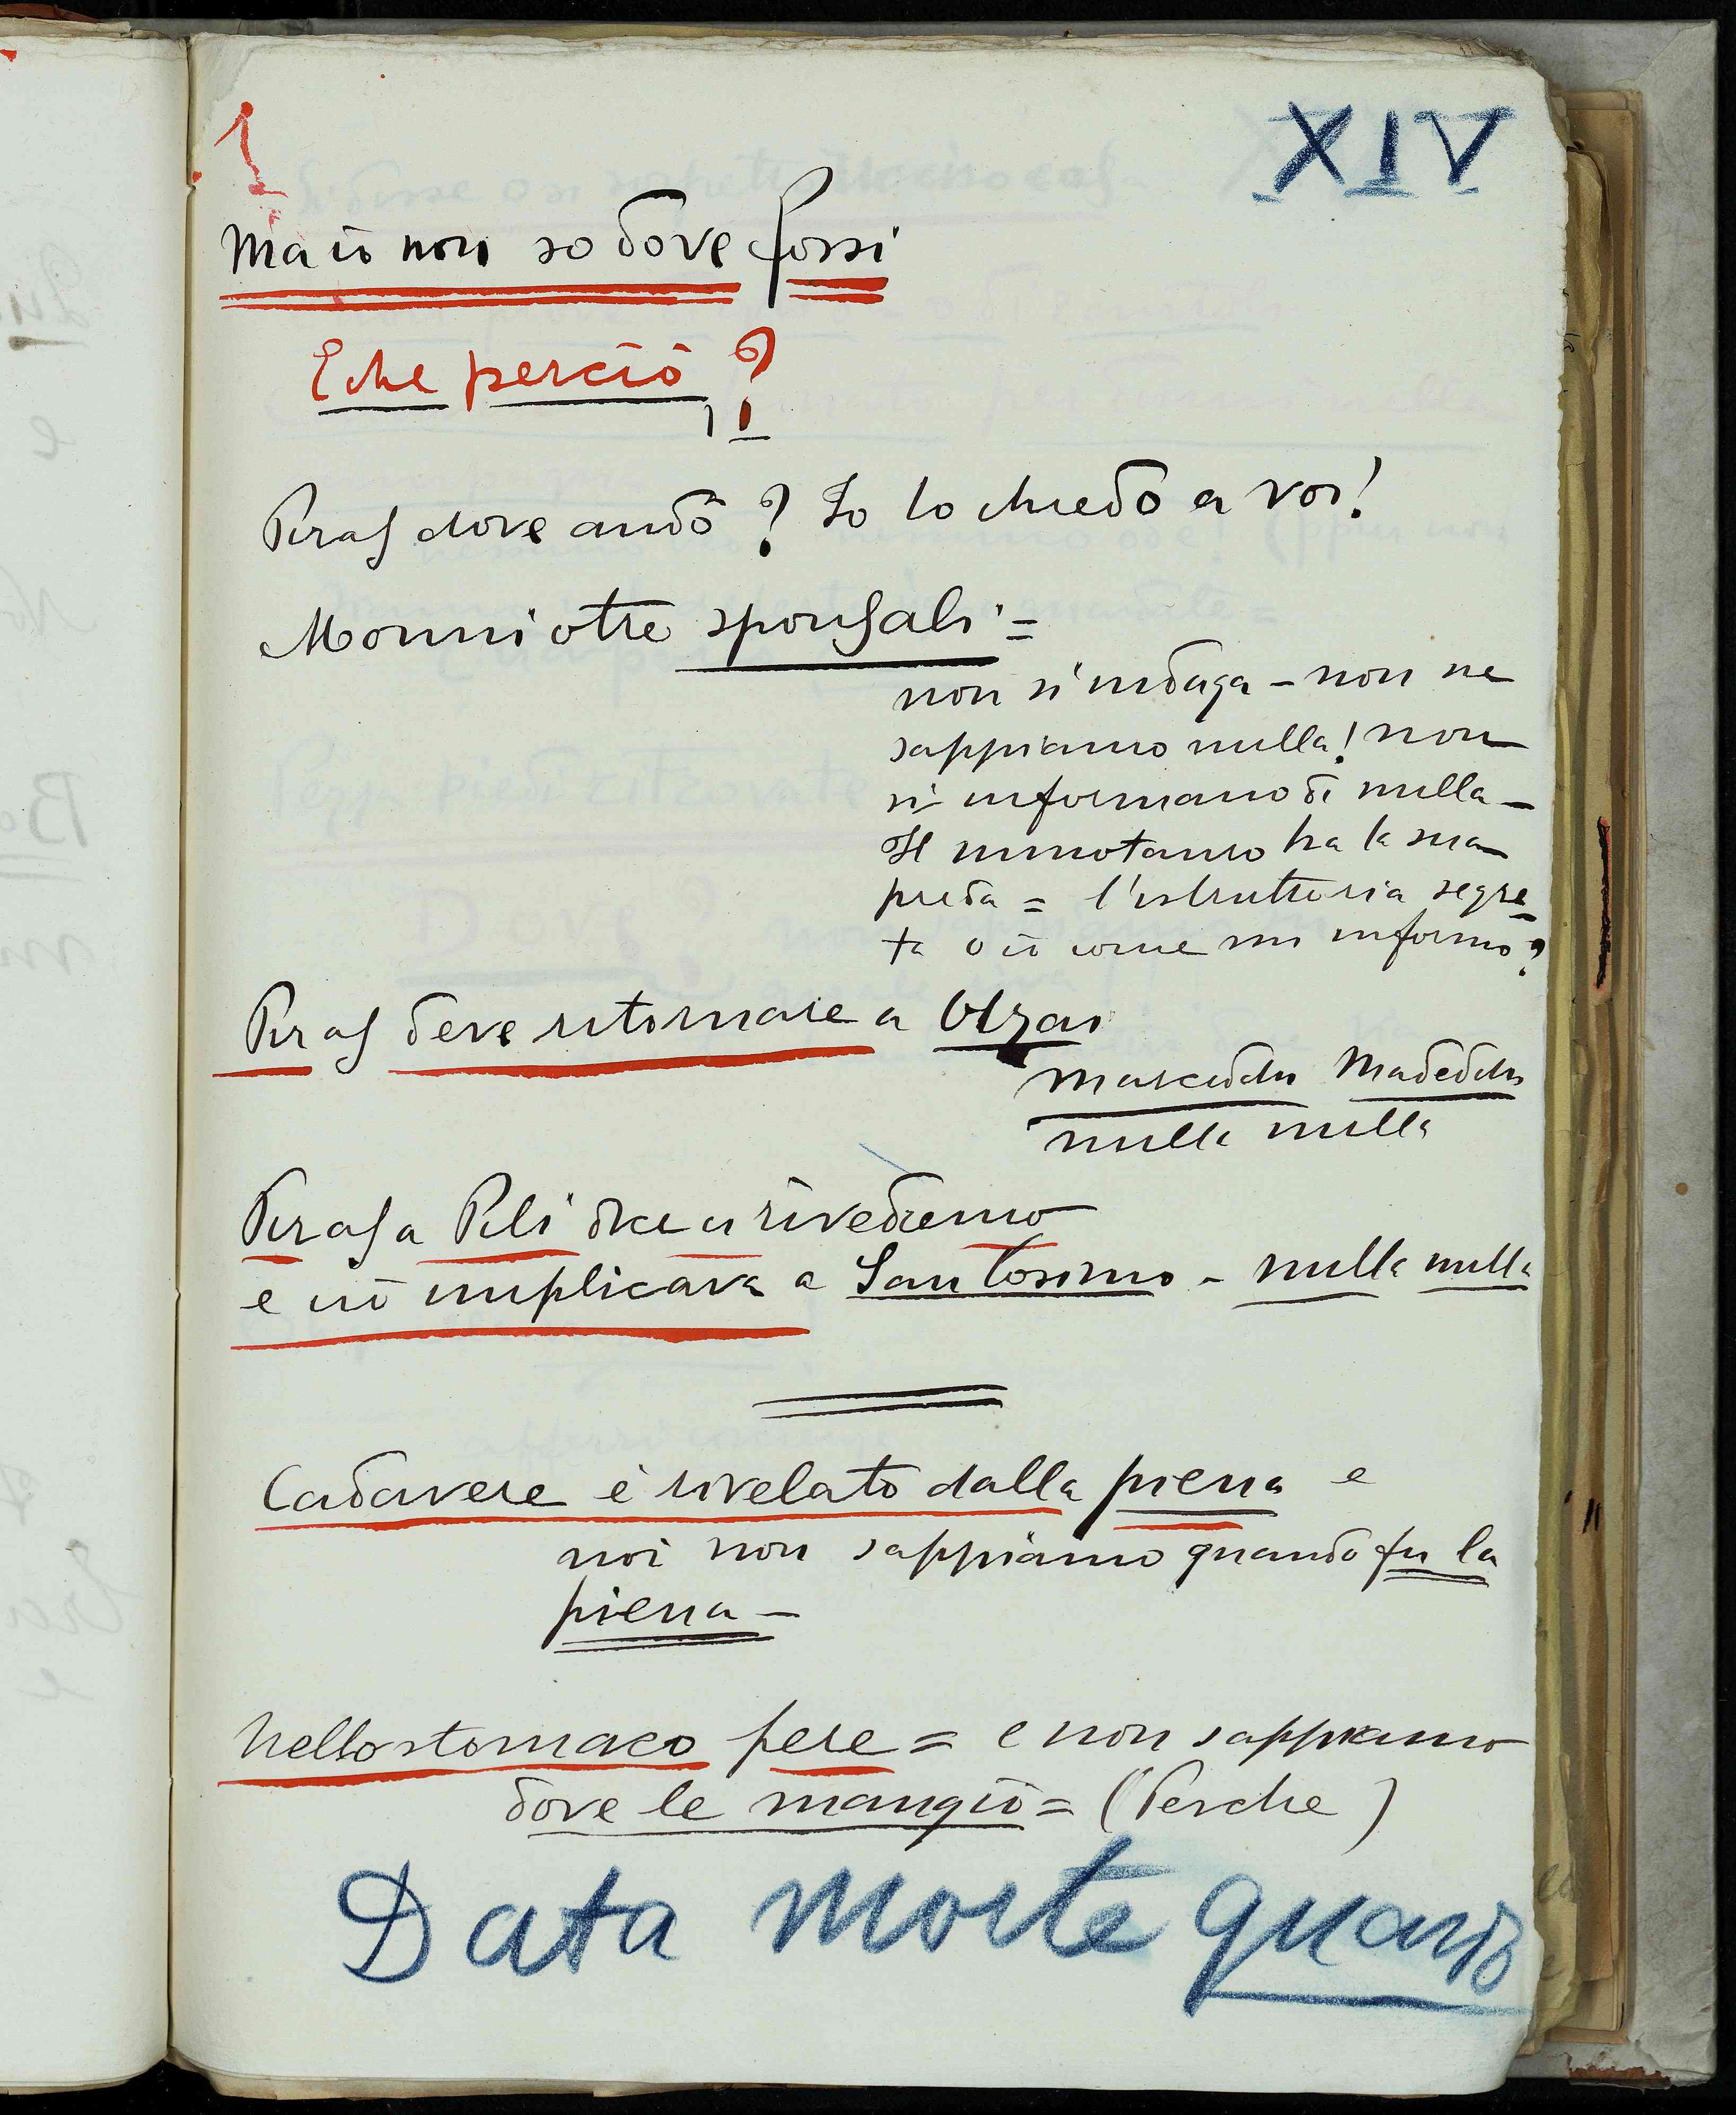 1
XIV
Ma io non so dove fossi
E che perciò?
Piras dove andò? Io lo chiedo a voi!
Monni oltre sponsali =
non s'indaga - non ne
sappiamo nulla! non
si informano di nulla -
Il minotauro ha la sua
preda = l'istruttoria segre=
ta o io come mi informo?
Piras deve ritornare a Olzai
Mascuddu Madeddu
nulla nulla
Piras a Pili dice ci rivedremo
e ciò implicava a San Cosimo - nulla nulla
Cadavere è rivelato dalla piena e
noi non sappiamo quando fu la
piena -
Nello stomaco pere = e non sappiamo
dove le mangiò = (Perche)
Data morte quando